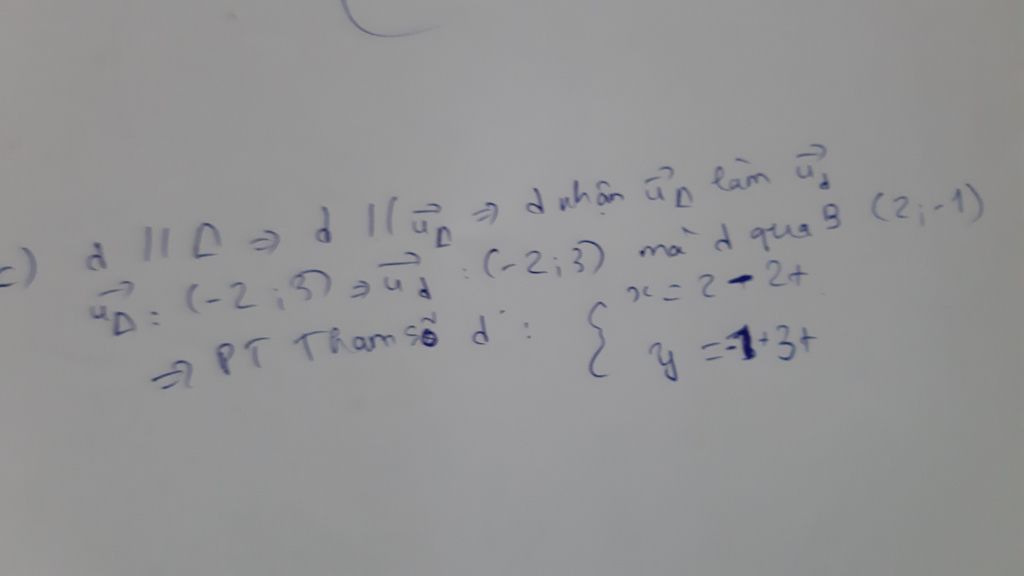 c) d // Δ ⇒ d // u⃗_Δ ⇒ d nhận u⃗_Δ làm u⃗_d
u⃗_Δ = (-2; 3) ⇒ u⃗_d : (-2; 3) mà d qua B (2; -1)
⇒ PT Tham số d : { x = 2 - 2t
y = -1 + 3t